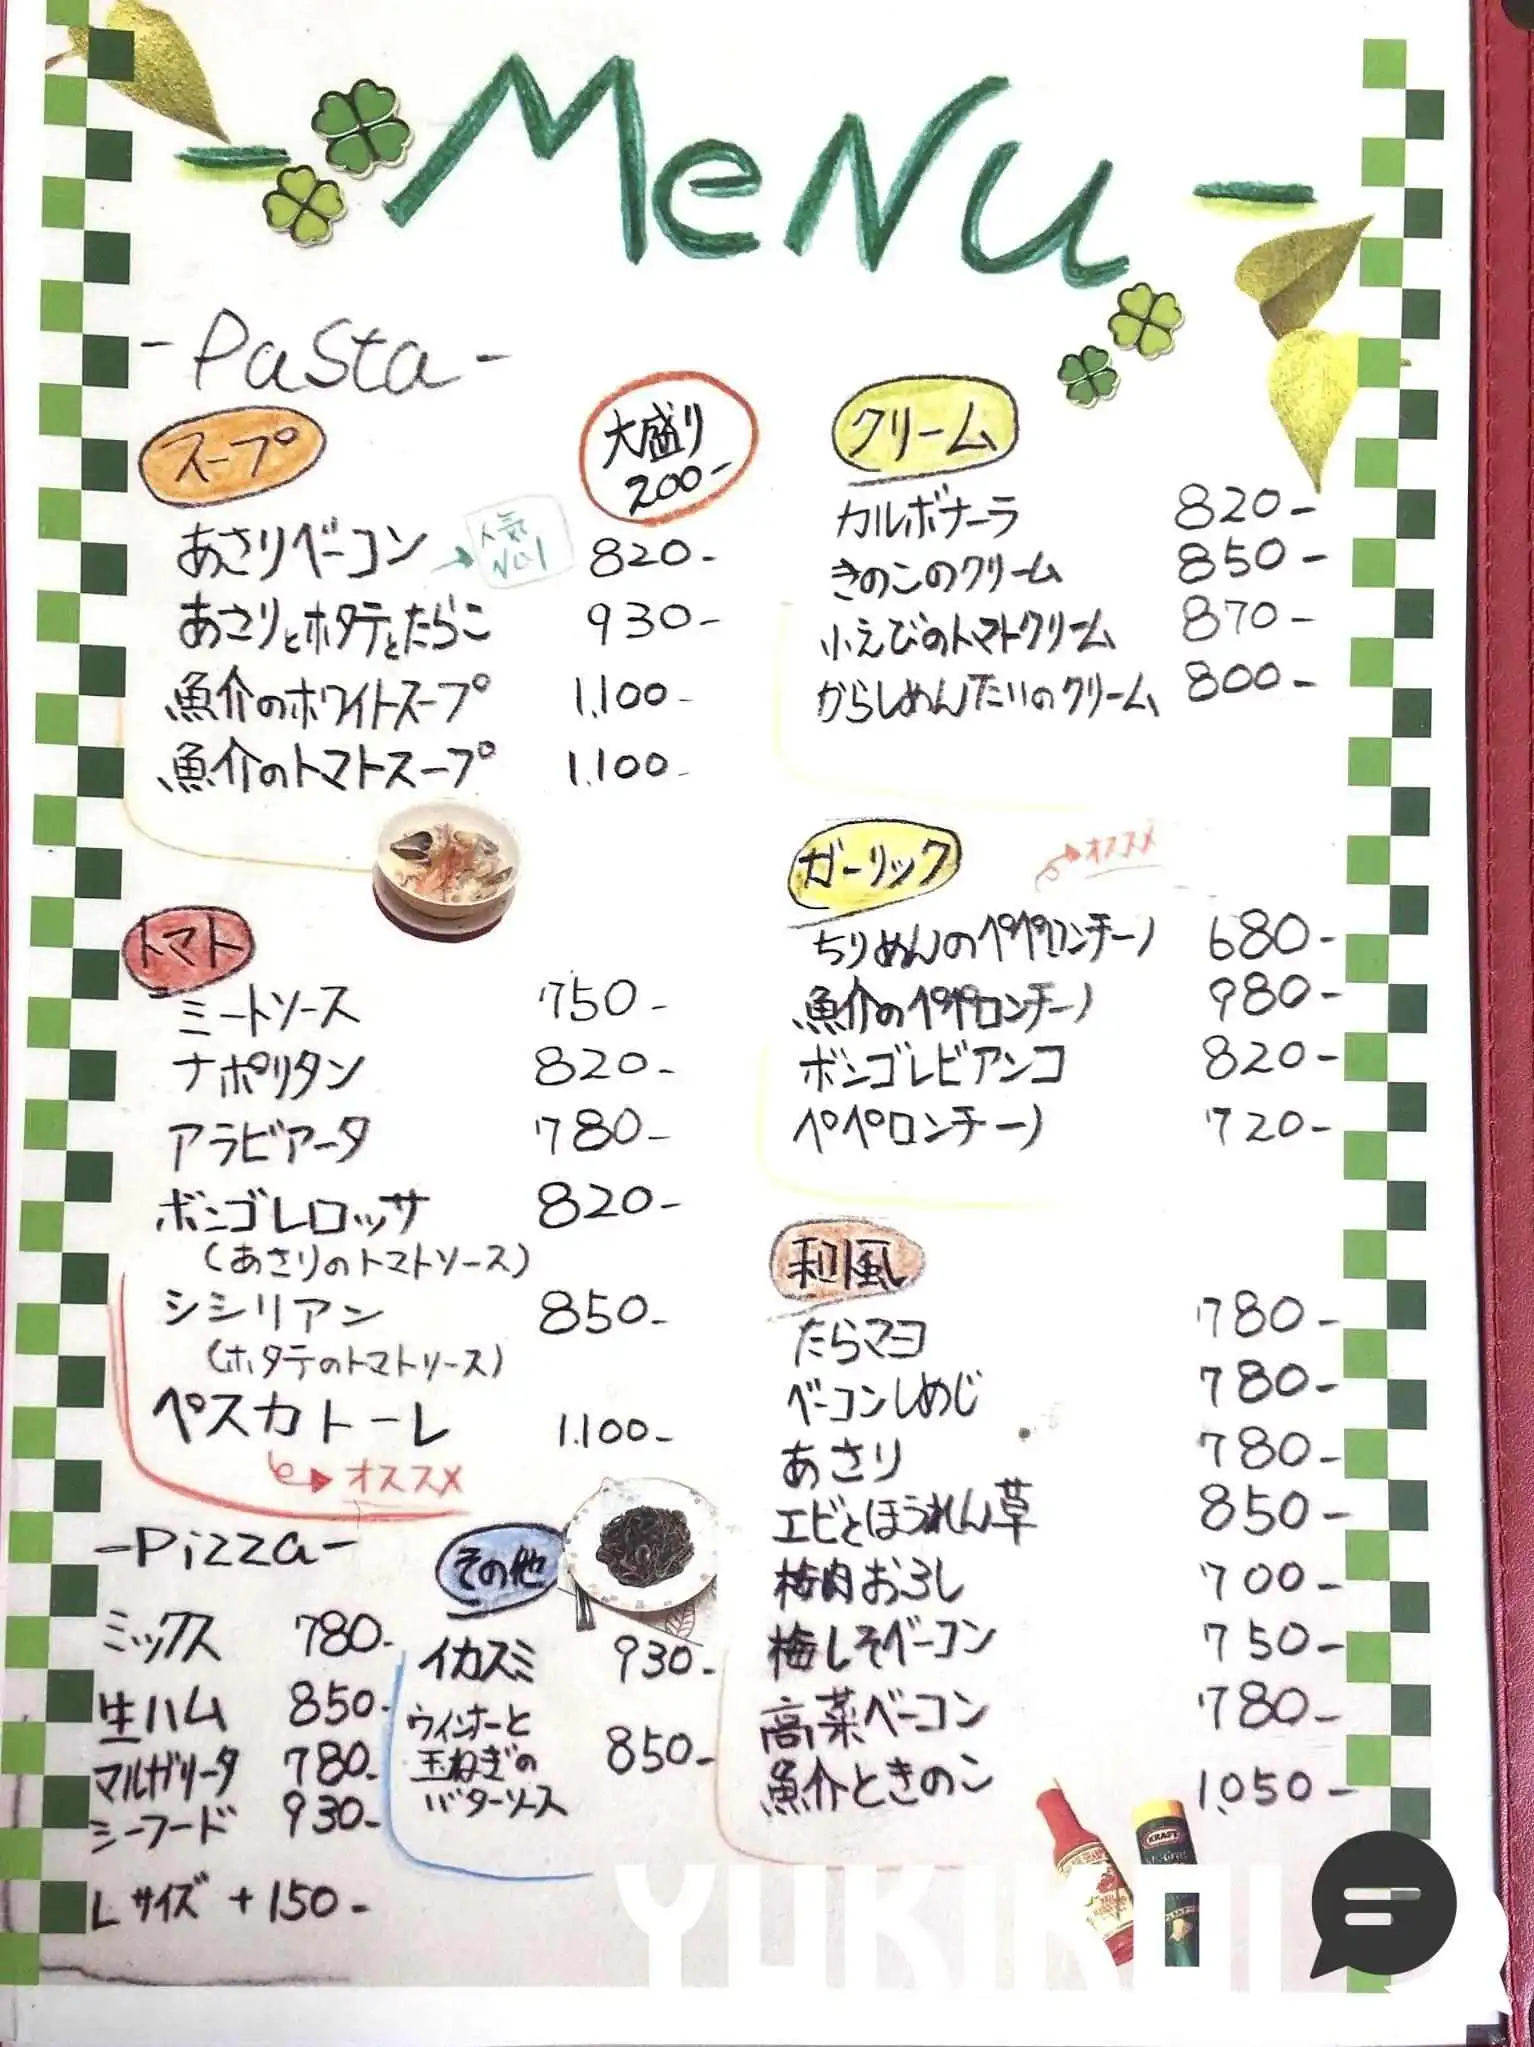 -MeNu-
-Pasta-
スープ
大盛り
200-
あさりベーコン 820-
人気
No.1
あさりとホタテとたらこ 930-
魚介のホワイトスープ 1,100-
魚介のトマトスープ 1,100-
トマト
ミートソース 750-
ナポリタン 820-
アラビアータ 780-
ボンゴレロッサ 820-
(あさりのトマトソース)
シシリアン 850-
(ホタテのトマトソース)
ペスカトーレ 1,100-
オススメ
-Pizza-
ミックス 780-
生ハム 850-
マルガリータ 780-
シーフード 930-
Lサイズ +150-
その他
イカスミ 930-
ウインナーと
玉ねぎの 850-
バターソース
クリーム
カルボナーラ 820-
きのこのクリーム 850-
小えびのトマトクリーム 870-
からしめんたいのクリーム 800-
ガーリック
オススメ
ちりめんのペペロンチーノ 680-
魚介のペペロンチーノ 980-
ボンゴレビアンコ 820-
ペペロンチーノ 720-
和風
たらマヨ 780-
ベーコンしめじ 780-
あさり 780-
エビとほうれん草 850-
梅肉おろし 700-
梅しそベーコン 750-
高菜ベーコン 780-
魚介ときのこ 1,050-
KRAFT